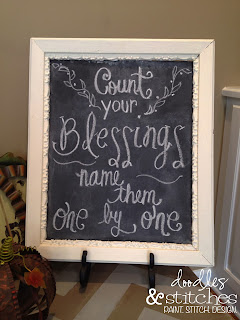 Count
your
Blessings
name
them
one by one
doodles
& stitches
PAINT. STITCH. DESIGN.